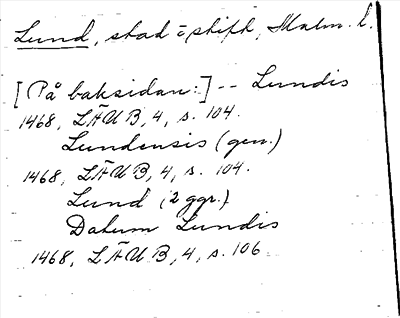 Lund, stad o stift, Malm. l.
[På baksidan:] -- Lundis
1468, LÄUB, 4, s. 104.
Lundensis (gen.)
1468, LÄUB, 4, s. 104.
Lund (2 ggr.)
Datum Lundis
1468, LÄUB, 4, s. 106.